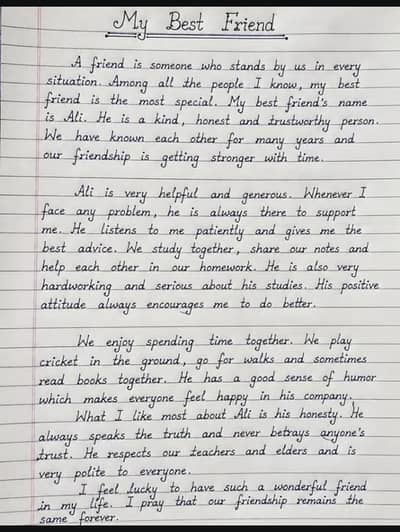 My Best Friend
A friend is someone who stands by us in every
situation. Among all the people I know, my best
friend is the most special. My best friend's name
is Ali. He is a kind, honest and trustworthy person.
We have known each other for many years and
our friendship is getting stronger with time.
Ali is very helpful and generous. Whenever I
face any problem, he is always there to support
me. He listens to me patiently and gives me the
best advice. We study together, share our notes and
help each other in our homework. He is also very
hardworking and serious about his studies. His positive
attitude always encourages me to do better.
We enjoy spending time together. We play
cricket in the ground, go for walks and sometimes
read books together. He has a good sense of humor
which makes everyone feel happy in his company.
What I like most about Ali is his honesty. He
always speaks the truth and never betrays anyone's
trust. He respects our teachers and elders and is
very polite to everyone.
I feel lucky to have such a wonderful friend
in my life. I pray that our friendship remains the
same forever.